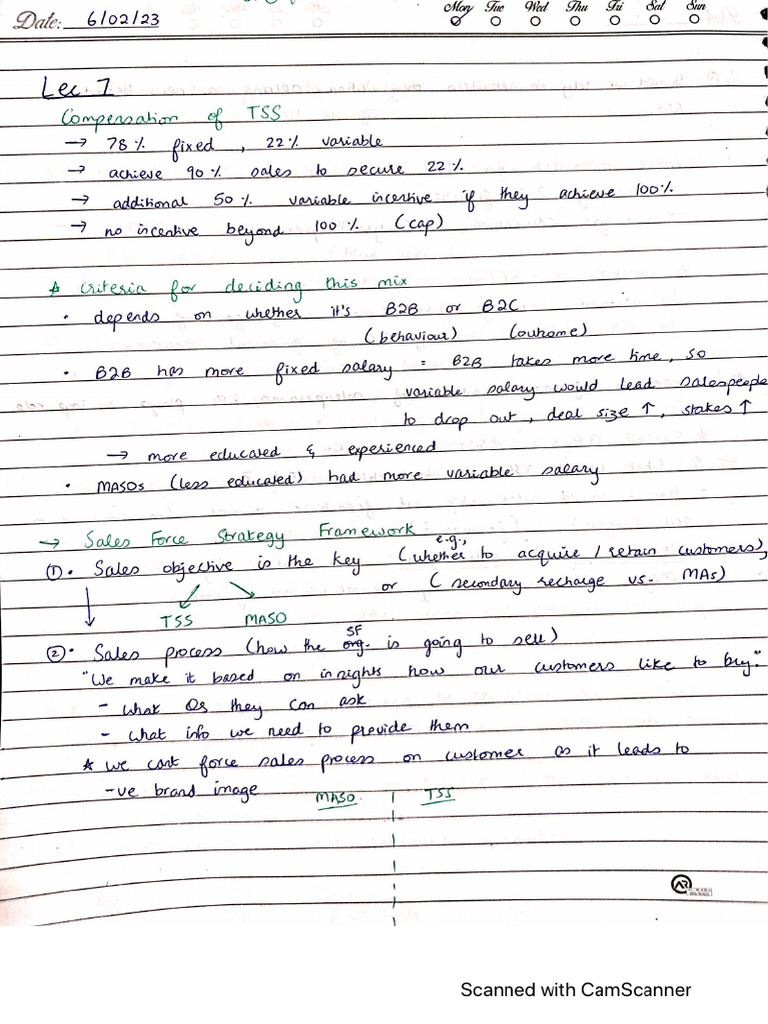 Date: 6/02/23 Mon Tue Wed Thu Fri Sat Sun
Lec 7
Compensation of TSS
→ 78% fixed, 22% variable
→ achieve 90% sales to secure 22%
→ additional 50% variable incentive if they achieve 100%
→ no incentive beyond 100% (cap)
* Criteria for deciding this mix
• depends on whether it's B2B or B2C
(behaviour) (outcome)
• B2B has more fixed salary = B2B takes more time, so
variable salary would lead salespeople
to drop out, deal size ↑, stakes ↑
→ more educated & experienced
• MASOs (less educated) had more variable salary
→ Sales Force Strategy Framework
①• Sales objective is the key (e.g., whether to acquire / retain customers),
or (secondary recharge vs. MAs)
TSS MASO
②• Sales process (how the SF org. is going to sell)
"We make it based on insights how our customers like to buy."
- what Qs they can ask
- what info we need to provide them
* we cant force sales process on customer as it leads to
-ve brand image
MASO TSS
AR
Scanned with CamScanner